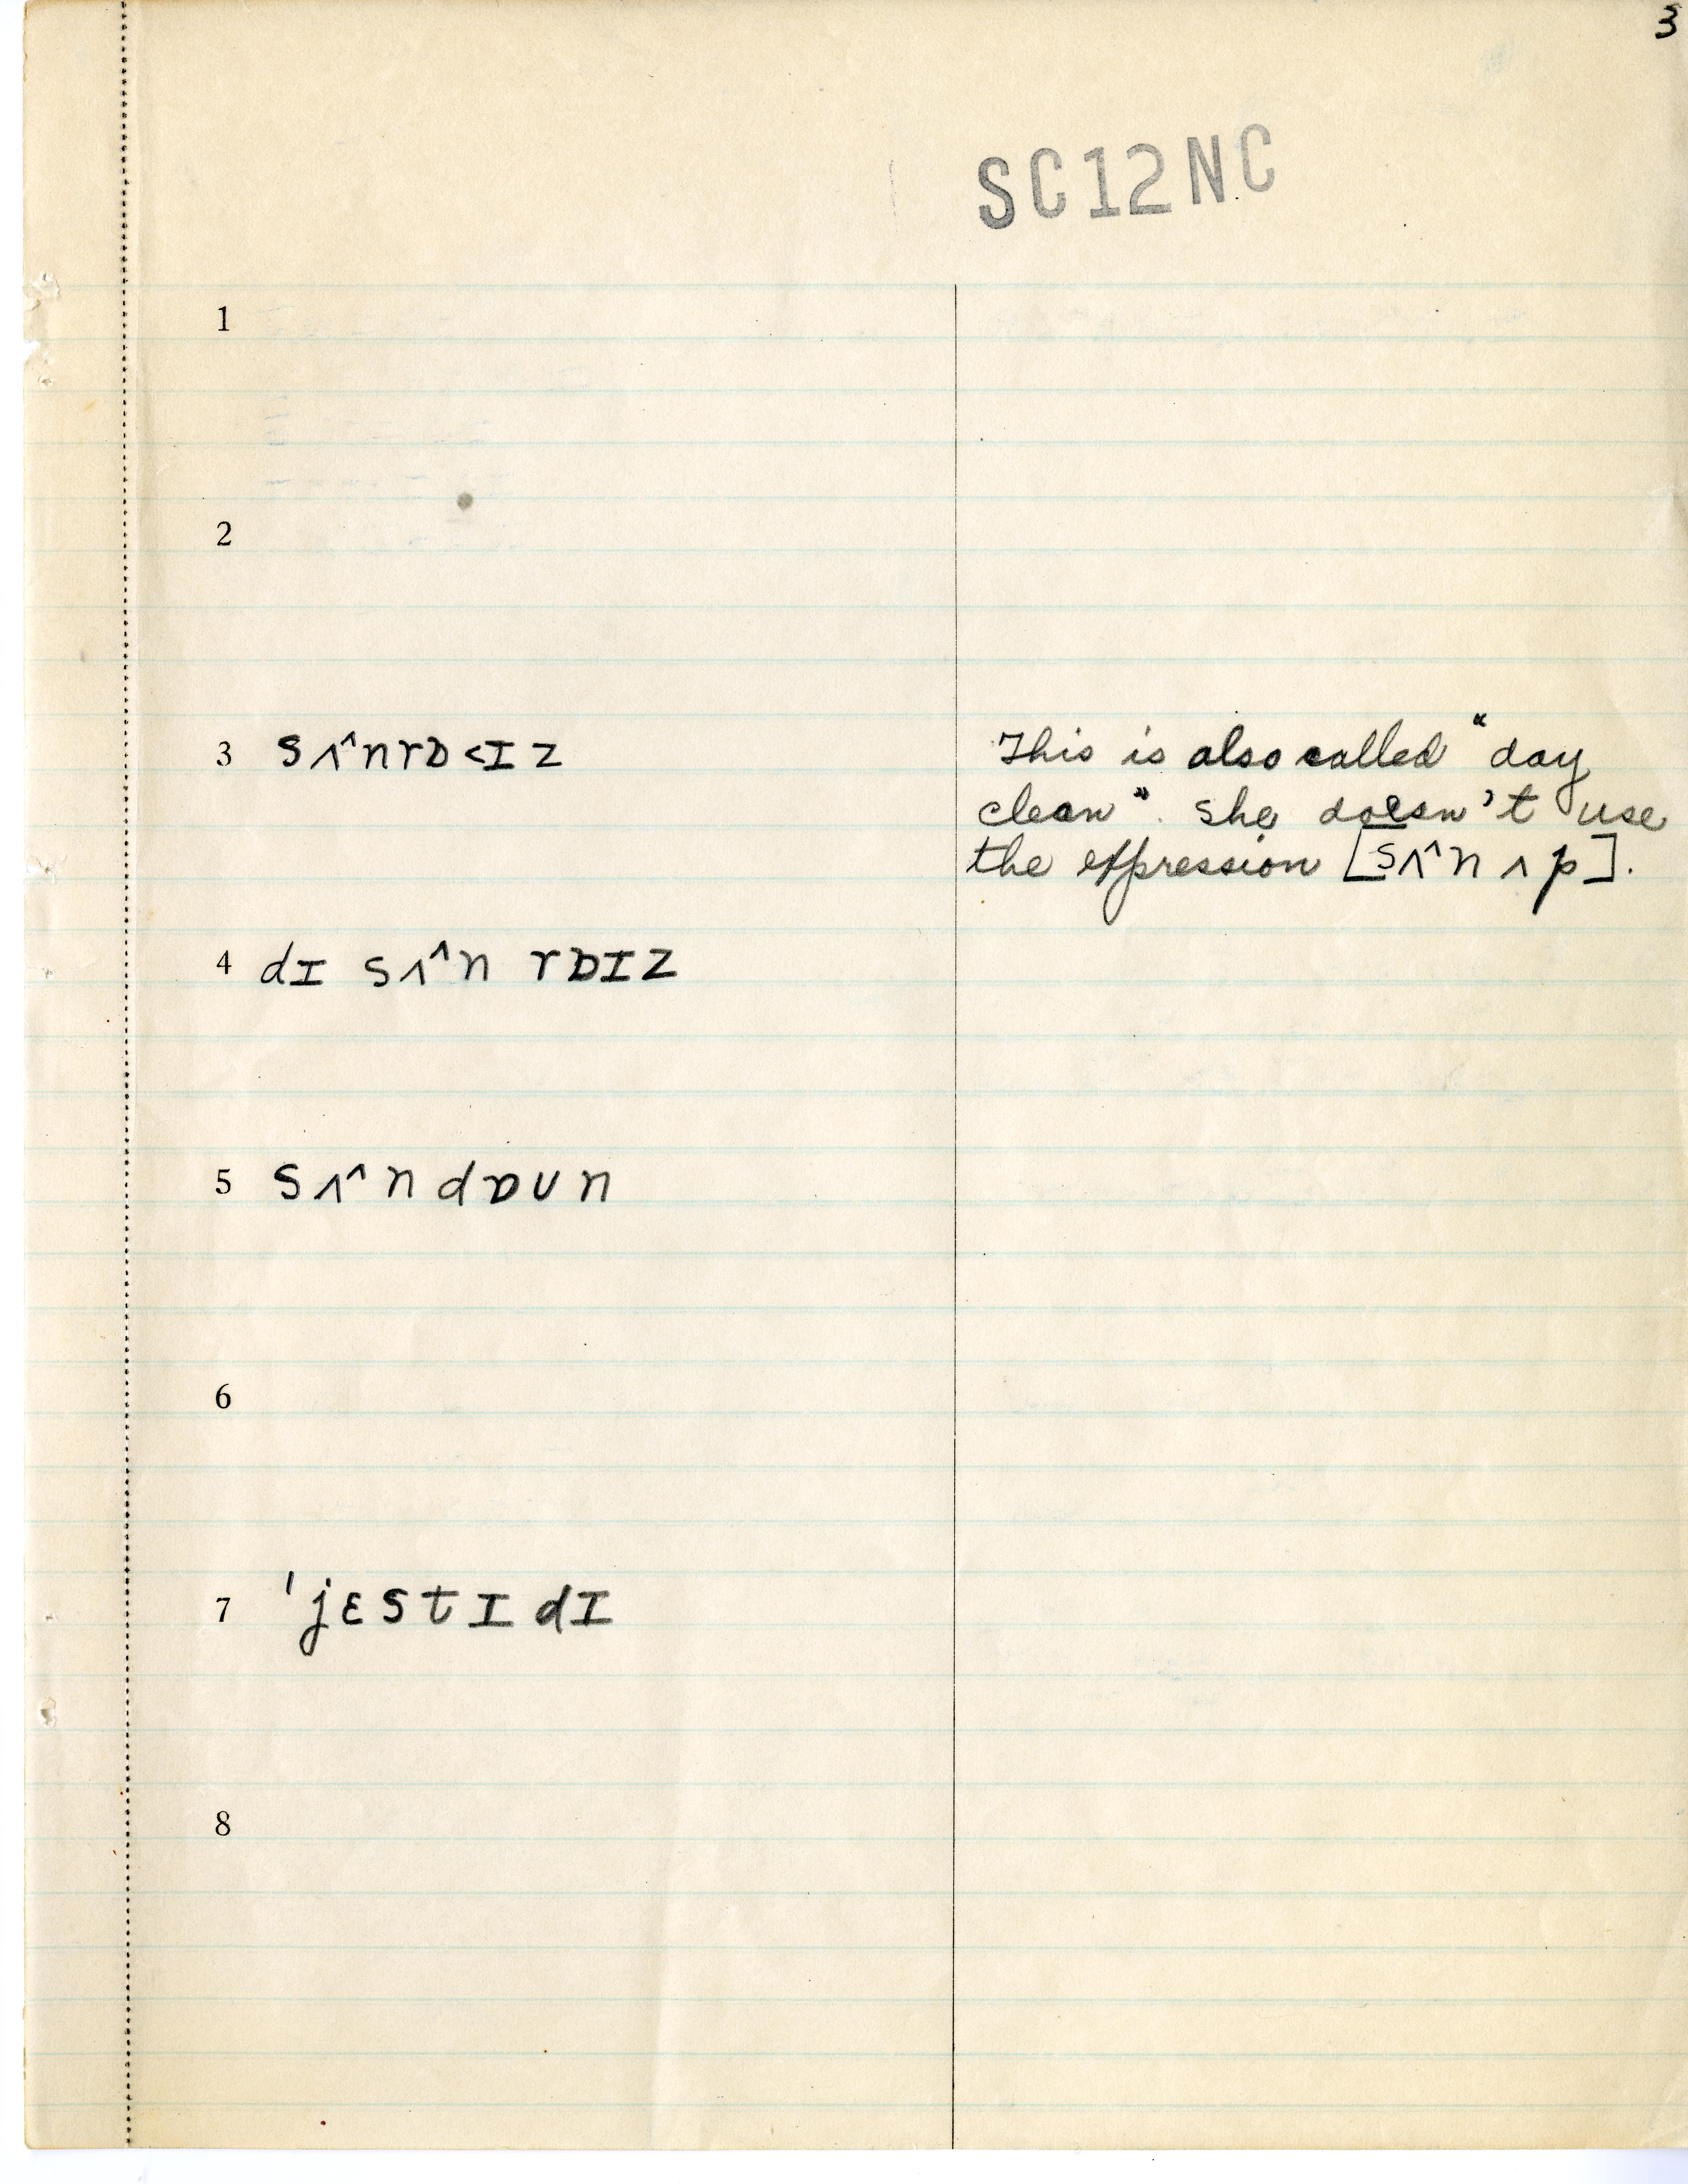 3
SC12NC
1
2
3 sʌ^nrɒ<ɪz
This is also called "day
clean". She doesn't use
the expression [sʌ^nʌp].
4 dɪ sʌ^n rɒɪz
5 sʌ^ndɒʊn
6
7 'jɛstɪdɪ
8